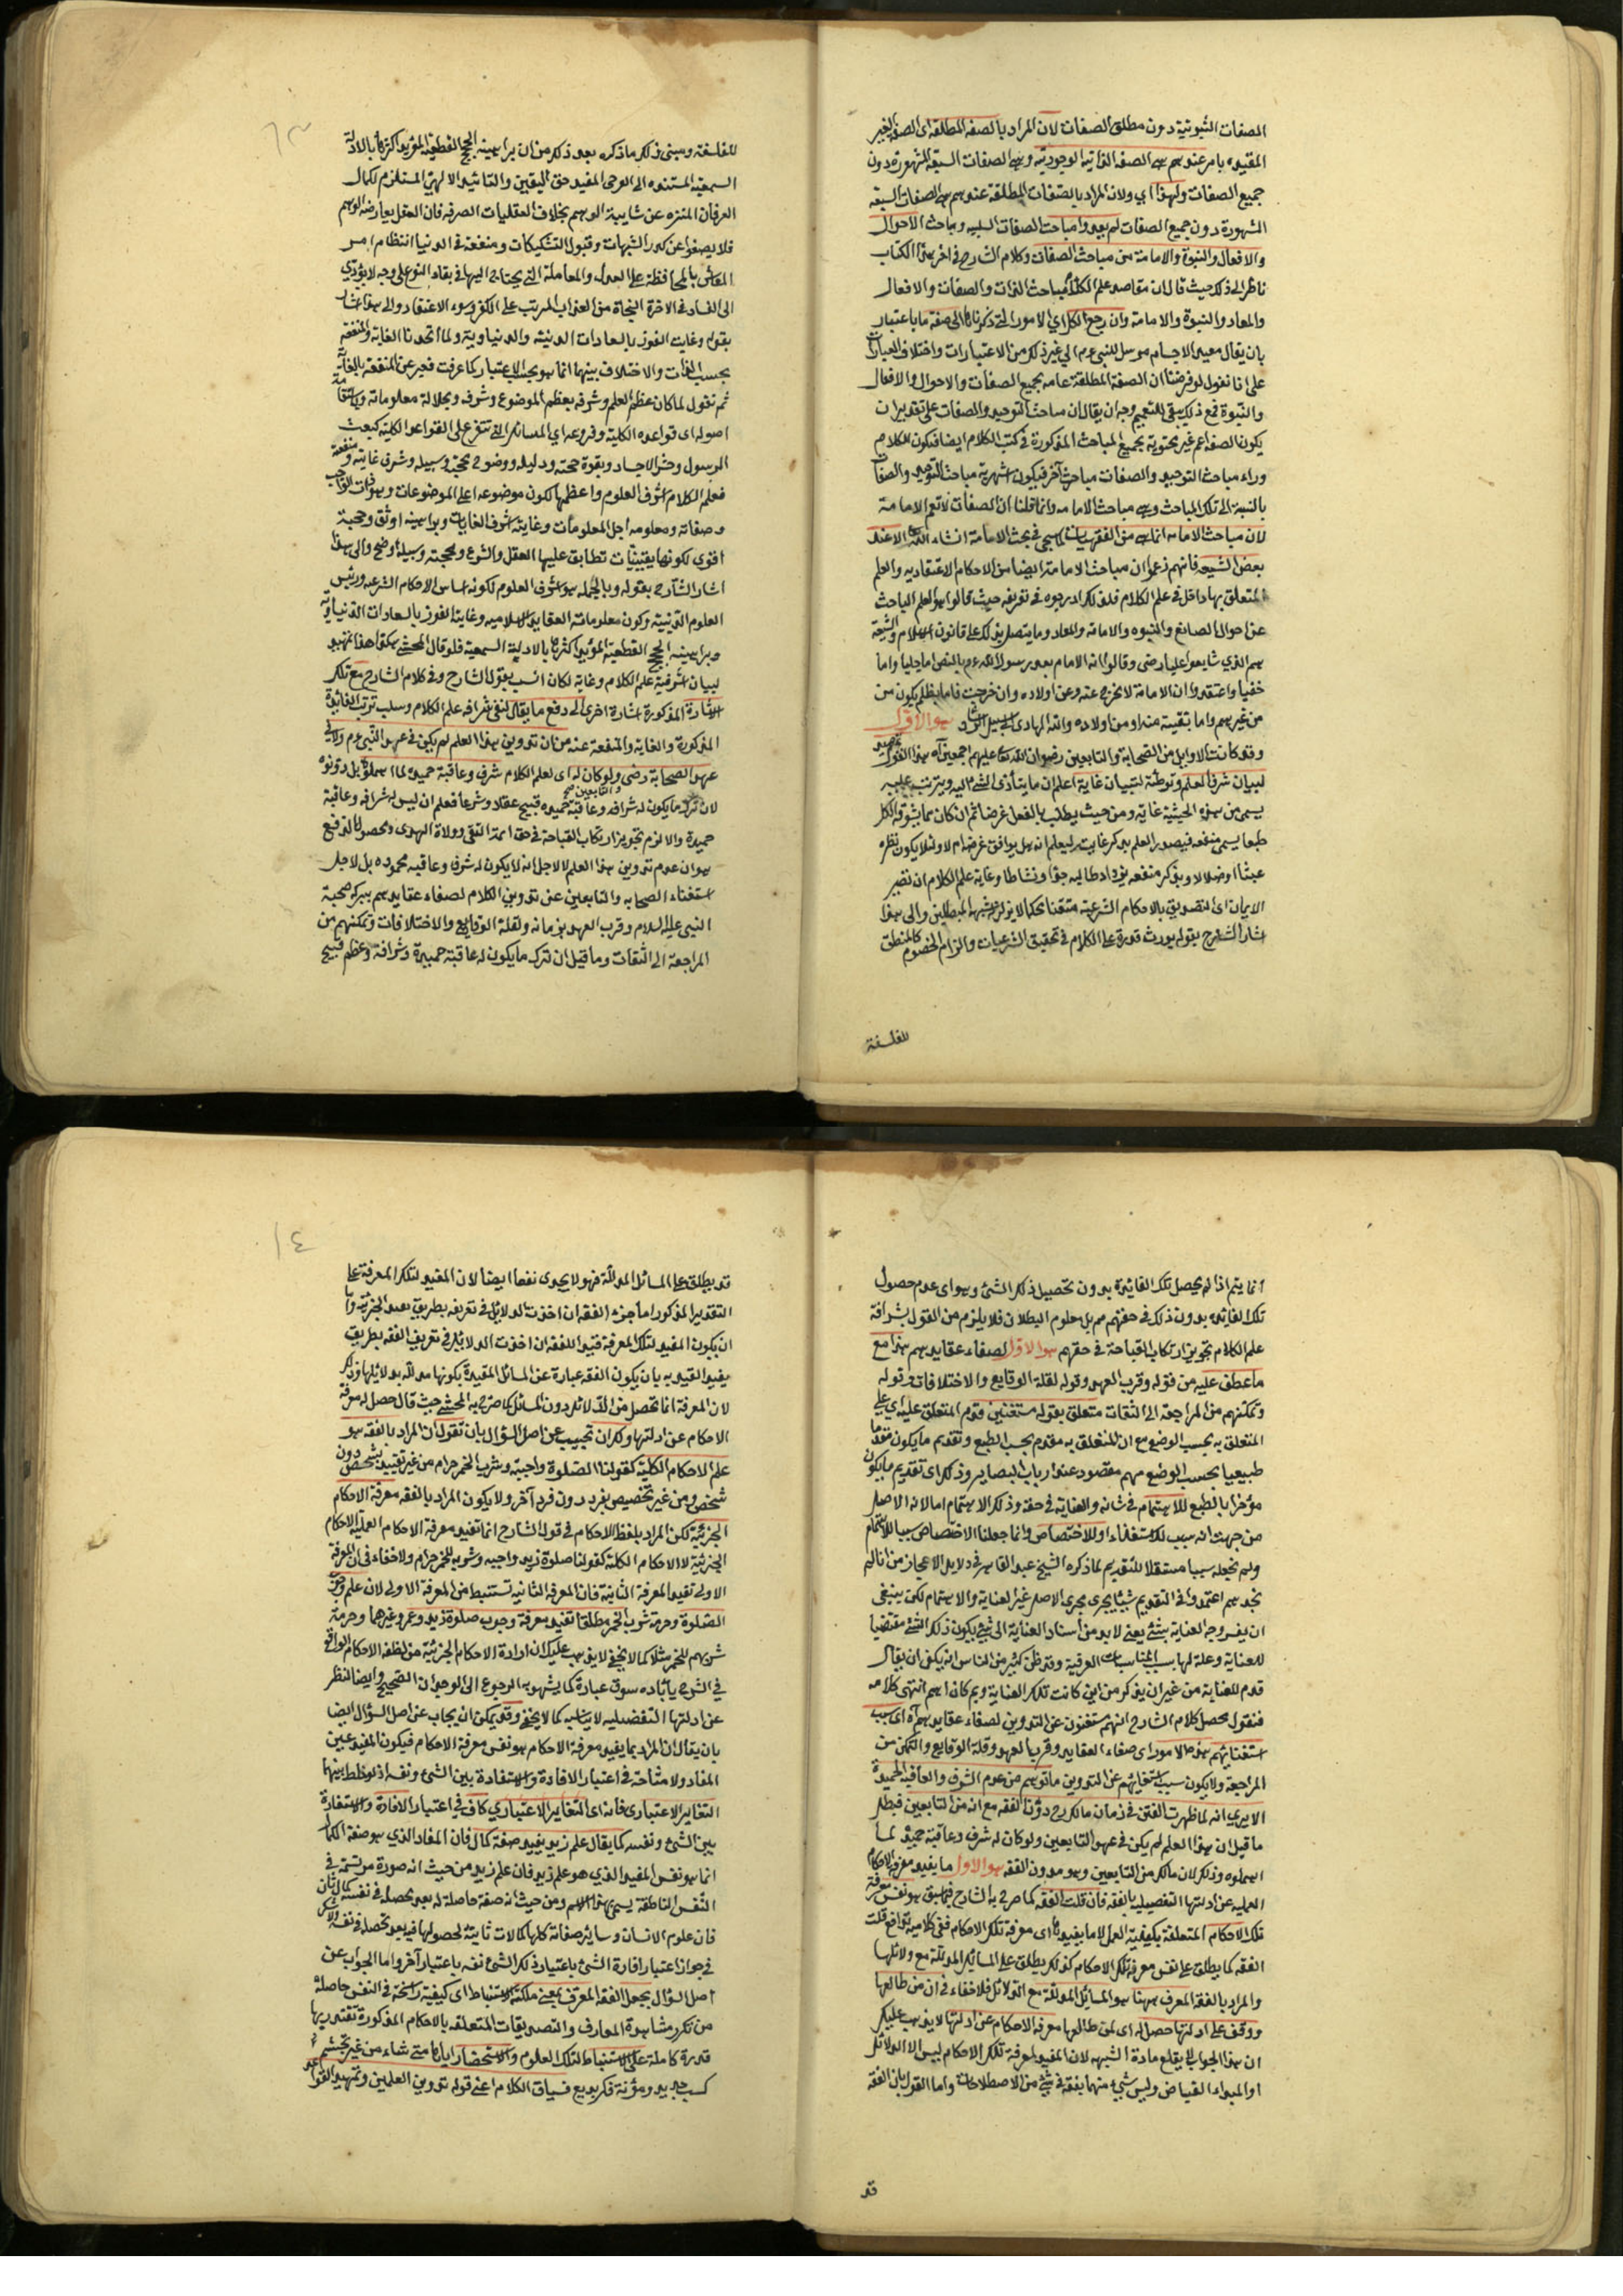 الصفات الثبوتية دون مطلق الصفات لان المراد بالصفة المطلقة اى الصفة الغير
المقيده بامر عندهم هى الصفة الذاتية الوجودية وهى الصفات السبعة المشهورة دون
جميع الصفات ولهذا اي ولان المراد بالصفات المطلقة عندهم هى الصفات السبعة
المشهورة دون جميع الصفات لم يعد وا مباحث الصفات السلبيه ومباحث الاحوال
والافعال والنبوة والامامة من مباحث الصفات وكلام الشارح فى اخر هذا الكتاب
ناظر الى ذلك حيث قال ان مقاصد علم الكلام مباحث الذات والصفات والافعال
والمعاد والنبوة والامامة وان رجع الكل اي الامور التى ذكرناها الى صفة ما باعتبار
بان يقال معيد الاجسام مرسل للنبى عم الى غير ذلك من الاعتبارات واختلاف العبارات
على انا نقول لو فرضنا ان الصفة المطلقة عامه بجميع الصفات والاحوال والافعال
والنبوة فمع ذلك يبقى للتعميم وجه ان يقال ان مباحث التوحيد والصفات على تقدير ان
يكون الصفة اعم غير محتوية بجميع المباحث المذكورة فى كتب الكلام ايضا فيكون للكلام
وراء مباحث التوحيد والصفات مباحث آخر فيكون اشهرية مباحث التوحيد والصفات
بالنسبة الى تلك المباحث وهى مباحث الامامه وانما قلنا ان الصفات لا تعم الامامة
لان مباحث الامامه انما هى من الفقهيات كما سيجى فى بحث الامامة انشاء الله تعا الا عند
بعض الشيعه فانهم زعموا ان مباحث الامامة ايضا من الاحكام الاعتقاديه والعلم
المتعلق بها داخل فى علم الكلام فلذلك ادرجوه فى تعريفه حيث قالوا هو العلم الباحث
عن احوال الصانع والنبوه والامامة والمعاد وما يتصل بذلك على قانون الاسلام والشيعة
هم الذي شايعوا عليا رضى وقالوا انه الامام بعد رسول الله عم بالنص اما جليا واما
خفيا واعتقدوا ان الامامة لا تخرج عنه وعن اولاده وان خرجت فاما بظلم يكون من
من غيرهم واما بتقية منه او من اولاده والله الهادى الى سبيل الرشاد هو الاول
وقد كانت الاوايل من الصحابة والتابعين رضوان الله تعا عليهم اجمعين آه هذا القول تمهيد
لبيان شرف العلم وتوطئة لتبيان غاية اعلم ان ما يتأدى الشئ اليه ويترتب عليه
يسمى من هذه الحيثية غاية ومن حيث يطلب بالفعل غرضا ثم ان كان مما يتشوقه الكل
طبعا يسمى منفعة فيصدر العلم بذكر غايته ليعلم انه هل يوافق غرضه ام لا ولئلا يكون نظره
عبثا او ضلالا وبذكر منفعة ليزداد طالبه جدا ونشاطا وغاية علم الكلام ان تصير
الايمان اى التصديق بالاحكام الشرعية متقنا محكما لا يزلزله شبه المبطلين والى هذا
اشار الشارح بقوله يورث قدرة على الكلام فى تحقيق الشرعيات والزام الخصوم كالمنطق
للفلسفة
للفلسفة ومبنى ذلك ما ذكره بعد ذلك من ان براهينه الحجج القطعية المؤيد اكثرها بالادلة
السمعية المستنده الى الوحى المفيد حق اليقين والتائيد الالهى المستلزم لكمال
العرفان المنزه عن شايبة الوهم بخلاف العقليات الصرفه فان العقل يعارضه الوهم
فلا يصفوا عن كدر الشبهات وقبول التشكيكات ومنفعته فى الدنيا انتظام امر
المعاش بالمحافظة على العدل والمعاملة التى يحتاج اليها فى بقاء النوع على وجه لا يؤدي
الى الفساد فى الاخرة النجاة من العذاب المرتب على الكفر وسوء الاعتقاد والى هذا اشار
بقوله وغايته الفوز بالسعادات الدينية والدنياوية ولما اتحدنا الغاية والمنفعة
بحسب الذات والاختلاف بينهما انما هو بحسب الاعتبار كما عرفت فعبر عن المنفعة بالغاية
ثم نقول لما كان عظم العلم وشرفه بعظم الموضوع وشرفه وبجلالة معلوماته وباستقامة
اصوله اى قواعده الكلية وفروعه اي المسائل التى تتفرع على القواعد الكلية كبعث
الرسول وحشر الاجساد وبقوة حجته ودليله ووضوح محجته وسبيله وشرف غايته ومنفعة
فعلم الكلام اشرف العلوم واعظمها لكون موضوعه اعلى الموضوعات وهو ذات الواجب
وصفاته ومعلومه اجل المعلومات وغايته اشرف الغايات وبراهينه اوثق وحجة
اقوى لكونها يقينيات تطابق عليها العقل والشرع ومحجته وسبيله اوضح والى هذا
اشار الشارح بقوله وبالجمله هو اشرف العلوم لكونه اساس الاحكام الشرعيه ورئيس
العلوم الدينية وكون معلوماته العقايد الاسلاميه وغايته الفوز بالسعادات الدنياوية
وبراهينه الحجج القطعية المؤيد اكثرها بالادلة السمعية فلو قال المحشى هكذا هذا تمهيد
لبيان اشرفية علم الكلام وغايه لكان انسب بقول الشارح وفى كلام الشارح مع تلك
الاشارة المذكورة اشارة اخرى الى دفع ما يقال لنفى شرافه علم الكلام وسلب ترتب الفايدة
المذكورة والغاية والمنفعة عنه من ان تدوين هذا العلم لم يكن فى عهد النبى عم ولا فى
عهد الصحابة رضى والتابعين ولو كان له اى لعلم الكلام شرف وعاقبة حميده لما اهملوه بل دونوه
لان ترك ما يكون له شرافه وعاقبة حميده قبيح عقلا وشرعا فعلم ان ليس له شرافه وعاقبة
حميدة والا لزم تجويز ارتكاب القباحة فى حق ائمة التقى وولاة الهدى ومحصول الدفع
هو ان عدم تدوين هذا العلم لا لاجل انه لا يكون له شرف وعاقبه محموده بل لاجل
استغناء الصحابه والتابعين عن تدوين الكلام لصفاء عقايدهم ببركة صحبة
النبى عليه السلام وقرب العهد بزمانه ولقلة الوقايع والاختلافات وتمكنهم من
المراجعة الى الثقات وما قيل ان ترك ما يكون له عاقبة حميدة وشرافة وعظم قبيح
انما يتم اذا لم يحصل تلك الفائدة بدون تحصيل ذلك الشئ وهو اى عدم حصول
تلك الفائدة بدون ذلك فى حقهم مم بل معلوم البطلان فلا يلزم من القول بشرافة
علم الكلام تجويز ارتكاب القباحة فى حقهم هو الاول لصفاء عقايدهم هذا مع
ما عطف عليه من قوله وقرب العهد وقوله لقلة الوقايع والاختلافات وقوله
وتمكنهم من المراجعة الى الثقات متعلق بقوله مستغنين قدم المتعلق عليه اي على
المتعلق به بحسب الوضع مع ان المتعلق به مقدم بحسب الطبع وتقديم ما يكون مقدما
طبيعيا بحسب الوضع مهم مقصود عند ارباب البصاير وذلك اى تقديم ما يكون
مؤخرا بالطبع للاهتمام فى شانه والعناية فى حقه وذلك الاهتمام اما لانه الاصل
من جهت انه سبب للاستغناء او للاختصاص وانما جعلنا الاختصاص سببا للاهتمام
ولم نجعله سببا مستقلا للتقديم لما ذكره الشيخ عبد القاهر فى دلايل الاعجاز من انا لم
نجدهم اعتمدوا فى التقديم شيئا يجرى مجرى الاصل غير العناية والاهتمام لكن ينبغى
ان يفسر وجه العناية بشئ يعنى لا بد من اسناد العناية الى شئ يكون ذلك الشئ مقتضيا
للعناية وعلة لها بسبب المناسبات العرفية وقد ظن كثير من الناس انه يكفى ان يقال
قدم للعناية من غير ان يذكر من اين كانت تلك العناية وبم كان اهم انتهى كلامه
فنقول محصل كلام الشارح انهم مستغنون عن التدوين لصفاء عقايدهم آه اى سبب
استغنائهم هذه الامور اى صفاء العقايد وقرب العهد وقلة الوقايع والتمكن من
المراجعة ولا يكون سبب استغنائهم عن التدوين ما توهم من عدم الشرف والعاقبة الحميدة
الا يرى انه لما ظهرت الفتن فى زمان مالك رح دون الفقه مع انه من التابعين فبطل
ما قيل ان هذا العلم لم يكن فى عهد التابعين ولو كان له شرف وعاقبة حميدة لما
اهملوه وذلك لان مالك من التابعين وهو مدون الفقه هو الاول ما يفيد معرفة الاحكام
العمليه عن ادلتها التفصيليه بالفقه فان قلت الفقه كما صرح به الشارح فيما سبق هو نفس معرفة
تلك الاحكام المتعلقة بكيفية العمل لا ما يفيدها اى معرفة تلك الاحكام ففى كلاميه تدافع قلت
الفقه كما يطلق على نفس معرفة تلك الاحكام كذلك يطلق على المسائل المدللة مع دلائلها
والمراد بالفقه المعرف ههنا هو المسائل المدللة مع الدلائل فلا خفاء فى ان من طالعها
ووقف على ادلتها حصل له اى لمن طالعها معرفة الاحكام عن ادلتها لا يذهب عليك
ان هذا الجواب لا يقلع مادة الشبهه لان المفيد لمعرفة تلك الاحكام ليس الا الدلائل
او المبداء الفياض وليس شئ منهما بفقه فى شئ من الاصطلاحات واما القول بان الفقه
قد
قد يطلق على المسائل المدللة فهو لا يجدى نفعا ايضا لان المفيد لتلك المعرفة على
التقدير المذكور اما جزء الفقه ان اخذت الدلائل فى تعريفه بطريق يفيد الجزئية واما
ان يكون المفيد لتلك المعرفة قيد اللفقه ان اخذت الدلائل فى تعريف الفقه بطريق
يفيد القيديه بان يكون الفقه عبارة عن المسائل المقيدة بكونها مدلله بدلائلها وذلك
لان المعرفة انما تحصل من الدلائل دون المسائل كما صرح به المحشى حيث قال حصل له معرفة
الاحكام عن ادلتها ولك ان تجيب عن اصل السؤال بان تقول ان المراد بالفقه هو
علم الاحكام الكلية كقولنا الصلوة واجبة وشرب الخمر حرام من غير تقييد بشخص دون
شخص ومن غير تخصيص بفرد دون فرد آخر ولا يكون المراد بالفقه معرفة الاحكام
الجزئية لكن المراد بلفظ الاحكام فى قول الشارح انما تفيد معرفة الاحكام العمليه الاحكام
الجزئية لا الاحكام الكلية كقولنا صلوة زيد واجبه وشربه للخمر حرام ولا خفاء فى ان المعرفة
الاولى تفيد المعرفة الثانية فان المعرفة الثانية تستنبط من المعرفة الاولى لان علم وجوب
الصلوة وحرمة شرب الخمر مطلقا تفيد معرفة وجوب صلوة زيد وعمرو غيرهما وحرمة
شربهم للخمر مثلا كما لا يخفى لا يذهب عليك ان ارادة الاحكام الجزئية من لفظه الاحكام الواقع
فى الشرح يأباه سوق عبارة كما يشهد به الرجوع الى الوجدان الصحيح وايضا النظر
عن ادلتها التفصيليه لا يناسبه كما لا يخفى وقد يمكن ان يجاب عن اصل السؤال ايضا
بان يقال ان المراد بما يفيد معرفة الاحكام هو نفس معرفة الاحكام فيكون المفيد عين
المفاد ولا مشاحة فى اعتبار الافادة والاستفادة بين الشئ ونفسه اذ لوحظ بينهما
التغاير الاعتبارى فانه اى التغاير الاعتباري كاف فى اعتبار الافادة والاستفادة
بين الشئ ونفسه كما يقال علم زيد يفيد صفة كمال فان المفاد الذي هو صفة الكمال
انما هو نفس المفيد الذي هو علم زيد فان علم زيد من حيث انه صورة مرتسمة فى
النفس الناطقة يسمى بهذا الاسم ومن حيث انه صفة حاصلة له بعد تحصله فى نفسه كمال ثان
فان علوم الانسان وسائر صفاته كلها كمالات ثابتة لحصولها فيه بعد تحصله فى نفسه
فى جواز اعتبار افادة الشئ باعتبار ذلك الشئ نفسه باعتبار آخر واما الجواب عن
اصل السؤال بجعل الفقه المعرف بمعنى ملكة الاستنباط اى كيفية راسخة فى النفس حاصلة
من تكرر مشاهدة المعارف والتصديقات المتعلقه بالاحكام المذكورة تقتدر بها
قدرة كاملة على الاستنباط لتلك العلوم والاستحضار اياها متى شاء من غير تجشم
كسب جديد ومؤنة فكر بديع فسياق الكلام اعنى قوله تدوين العلمين وتمهيد القواعد